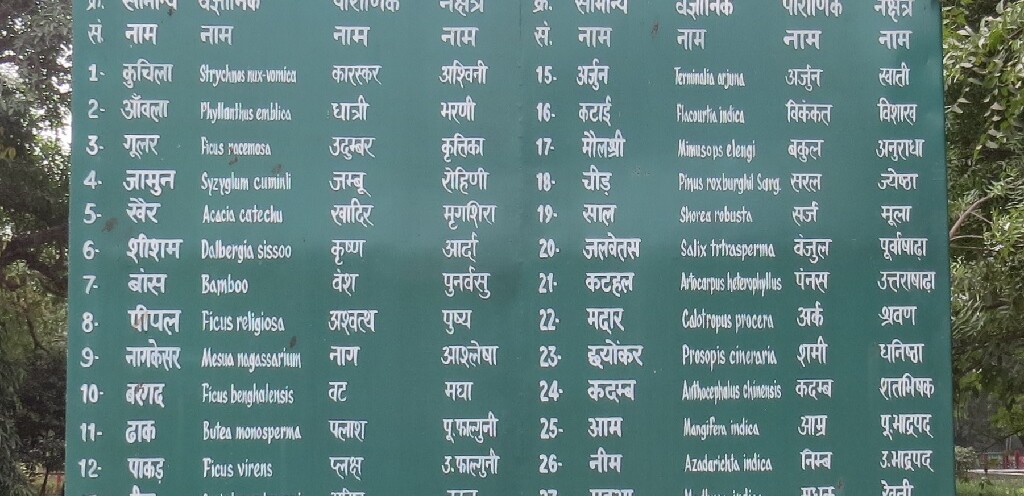 क्र. सामान्य वैज्ञानिक पौराणिक नक्षत्र क्र. सामान्य वैज्ञानिक पौराणिक नक्षत्र
सं. नाम नाम नाम नाम सं. नाम नाम नाम नाम
1- कुचिला Strychnos nux-vomica कारस्कर अश्विनी 15- अर्जुन Terminalia arjuna अर्जुन स्वाती
2- आँवला Phyllanthus emblica धात्री भरणी 16- कटाई Flacourtia indica विकंकत विशाख
3- गूलर Ficus racemosa उदुम्बर कृत्तिका 17- मौलश्री Mimusops elengi बकुल अनुराधा
4- जामुन Syzygium cuminli जम्बू रोहिणी 18- चीड़ Pinus roxburghil Sarg. सरल ज्येष्ठा
5- खैर Acacia catechu खदिर मृगशिरा 19- साल Shorea robusta सर्ज मूला
6- शीशम Dalbergia sissoo कृष्ण आर्द्रा 20- जलवेतस Salix trtrasperma वंजुल पूर्वाषाढ़ा
7- बांस Bamboo वंश पुनर्वसु 21- कटहल Artocarpus heterophyllus पंनस उत्तराषाढ़ा
8- पीपल Ficus religiosa अश्वत्थ पुष्य 22- मदार Calotropus procera अर्क श्रवण
9- नागकेसर Mesua nagassarium नाग आश्लेषा 23- छ्योंकर Prosopis cineraria शमी धनिष्ठा
10- बरगद Ficus benghalensis वट मघा 24- कदम्ब Anthocephalus chinensis कदम्ब शतभिषक
11- ढाक Butea monosperma पलाश पू.फाल्गुनी 25- आम Mangifera indica आम्र पू.भाद्रपद्
12- पाकड़ Ficus virens प्लक्ष् उ.फाल्गुनी 26- नीम Azadarichtia indica निम्ब उ.भाद्रपद्